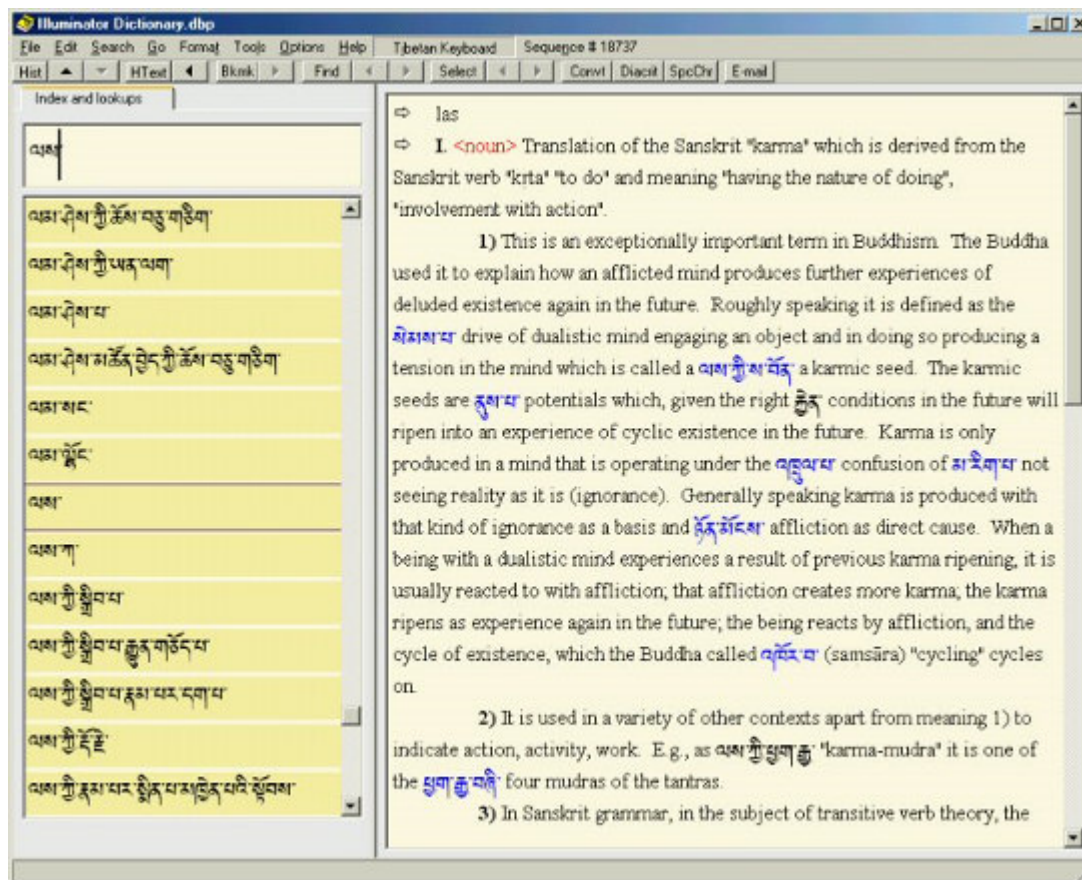 Illuminator Dictionary.dbp
File Edit Search Go Format Tools Options Help Tibetan Keyboard Sequence # 18737
Hist HText Bkmk Find Select Convt Diacrit SpcChr E-mail
Index and lookups
ལས་
ལམ་ཤེས་ཀྱི་ཆོས་བཅུ་གཅིག་
ལམ་ཤེས་ཀྱི་ཡན་ལག་
ལམ་ཤེས་པ་
ལམ་ཤེས་མཚོན་བྱེད་ཀྱི་ཆོས་བཅུ་གཅིག་
ལམ་སང་
ལམ་ལྷོང་
ལས་
ལས་ཀ་
ལས་ཀྱི་སྒྲིབ་པ་
ལས་ཀྱི་སྒྲིབ་པ་རྒྱུན་གཅོད་པ་
ལས་ཀྱི་སྒྲིབ་པ་རྣམ་པར་དག་པ་
ལས་ཀྱི་རྡོ་རྗེ་
ལས་ཀྱི་རྣམ་པར་སྨིན་པ་མཁྱེན་པའི་སྟོབས་
⇨ las
⇨ I. <noun> Translation of the Sanskrit "karma" which is derived from the
Sanskrit verb "kṛta" "to do" and meaning "having the nature of doing",
"involvement with action".
1) This is an exceptionally important term in Buddhism. The Buddha
used it to explain how an afflicted mind produces further experiences of
deluded existence again in the future. Roughly speaking it is defined as the
སེམས་པ་ drive of dualistic mind engaging an object and in doing so producing a
tension in the mind which is called a ལས་ཀྱི་ས་བོན་ a karmic seed. The karmic
seeds are ནུས་པ་ potentials which, given the right རྐྱེན་ conditions in the future will
ripen into an experience of cyclic existence in the future. Karma is only
produced in a mind that is operating under the འཁྲུལ་པ་ confusion of མ་རིག་པ་ not
seeing reality as it is (ignorance). Generally speaking karma is produced with
that kind of ignorance as a basis and ཉོན་མོངས་ affliction as direct cause. When a
being with a dualistic mind experiences a result of previous karma ripening, it is
usually reacted to with affliction; that affliction creates more karma; the karma
ripens as experience again in the future; the being reacts by affliction, and the
cycle of existence, which the Buddha called འཁོར་བ་ (samsāra) "cycling" cycles
on.
2) It is used in a variety of other contexts apart from meaning 1) to
indicate action, activity, work. E.g., as ལས་ཀྱི་ཕྱག་རྒྱ་ "karma-mudra" it is one of
the ཕྱག་རྒྱ་བཞི་ four mudras of the tantras.
3) In Sanskrit grammar, in the subject of transitive verb theory, the